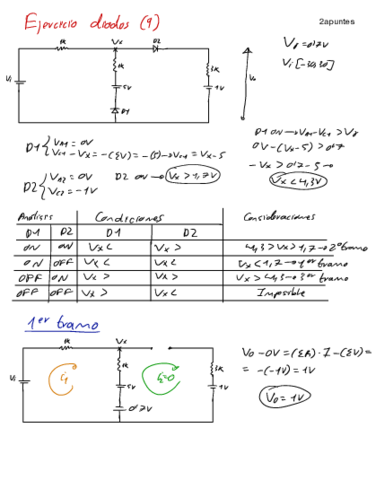 Ejercicio diodos (9)
2apuntes
Vγ = 0'7V
Vi [-30,30]
R
Vx
D2
1k
3k
Vi
5V
1V
Vo
D1
D1 { VA1 = 0V
VC1 - Vx = -(ΣV) = -(5) → VC1 = Vx - 5
D2 { VA2 = 0V
VC2 = -1V
D2 ON → Vx > 1,7V
D1 ON → VA1 - VC1 > Vγ
0V - (Vx - 5) > 0'7
-Vx > 0'7 - 5 →
Vx < 4,3V
Análisis
Condiciones
Consideraciones
D1 D2 D1 D2
ON ON Vx < Vx > 4,3 > Vx > 1,7 → 2º tramo
ON OFF Vx < Vx < Vx < 1,7 → 1er tramo
OFF ON Vx > Vx > Vx > 4,3 → 3er tramo
OFF OFF Vx > Vx < Imposible
1er tramo
R
Vx
1k
3k
Vi
5V
1V
0'7V
Vo - 0V = (ΣR) · I - (ΣV) =
= -(-1V) = 1V
Vo = 1V